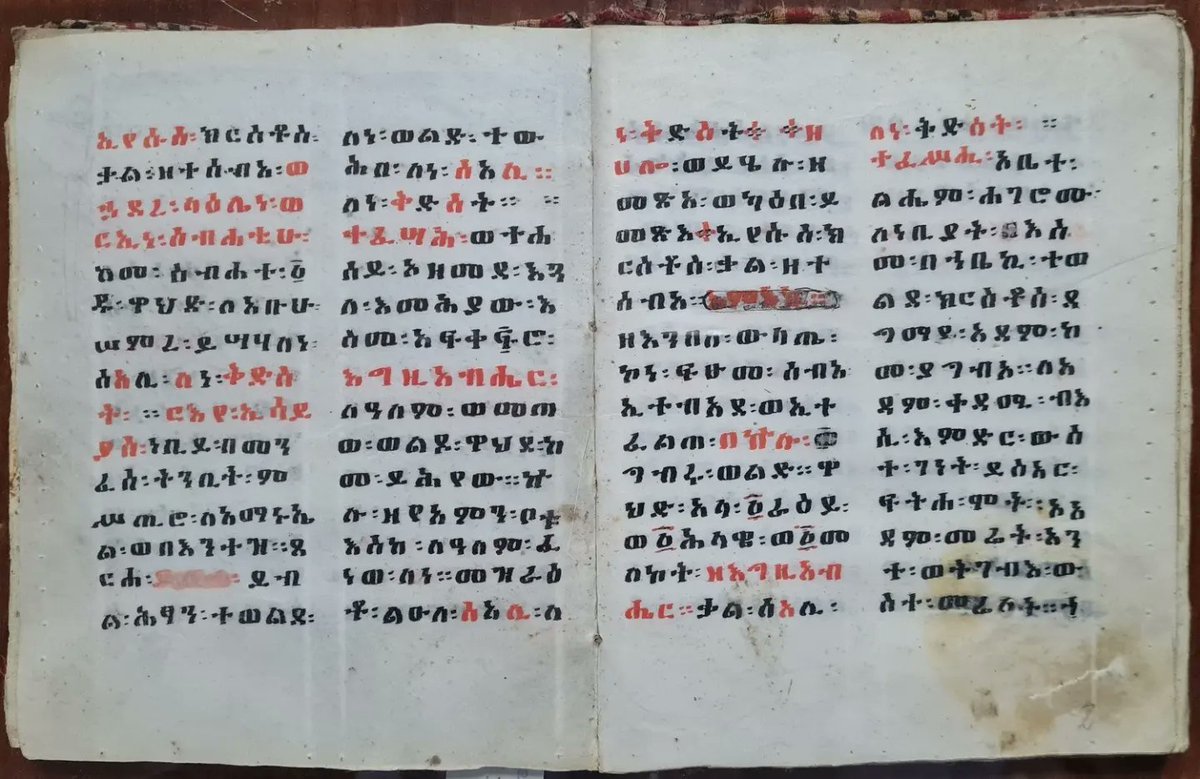 ኢየሱስ፡ክርስቶስ፡
ቃል፡ዘተሰብአ፡ወ
ኀደረ፡ላዕሌነ፡ወ
ርኢነ፡ስብሐቲሁ፡
ከመ፡ስብሐተ፡፩
ዱ፡ዋህድ፡ለአቡሁ፡
ሠምረ፡ይሣሃለነ፡
ሰአሊ፡ለነ፡ቅድስ
ት፡ ። ርእየ፡ኢሳይ
ያስ፡ነቢይ፡በመን
ፈስ፡ትንቢት፡ም
ሥጢሮ፡ለአማኑኤ
ል፡ወበእንተዝ፡ጸ
ርሐ፡ ይብ
ል፡ሕፃን፡ተወልደ፡
ለነ፡ወልድ፡ተው
ሕበ፡ለነ፡ሰአሊ፡
ለነ፡ቅድስት።
ተፈሣሕ፡ወተሐ
ሰይ፡ኦዘመደ፡እጓ
ለ፡እመሕያው፡እ
ስመ፡አፍቀሮ፡
እግዚአብሔር፡
ለዓለም፡ወመጠ
ወ፡ወልዶ፡ዋህደ፡ከ
መ፡ይሕየው።ኵ
ሉ፡ዘየአምን፡ቦቱ
እስከ፡ለዓለም፡ፈ
ነወ፡ለነ።መዝራዕ
ቶ፡ልዑለ፡ሰአሊ፡ለ
ነ፡ቅድስት፡ ዘ
ሀሎ፡ወይሄሉ፡ዘ
መጽአ፡ወካዕበ፡ይ
መጽእ፡ኢየሱስ፡ክ
ርስቶስ፡ቃል፡ዘተ
ሰብአ፡
ዘእንበለ፡ውላጤ፡
ኮነ፡ፍፁመ፡ሰብአ
ኢተብእደ፡ወኢተ
ፈልጠ፡በኵሉ፡
ግብሩ፡ወልድ።ዋ
ህድ፡አላ፡፩ራዕይ፡
ወ፩ሕላዌ፡ወ፩መ
ለኮት፡ዘእግዚአብ
ሔር።ቃል፡ሰአሊ፡
ለነ፡ቅድስት፡ ።
ተፈሥሒ፡ኦቤተ፡
ልሔም፡ሐገሮሙ
ለነቢያት፡እስ
መ፡በኀቤኪ፡ተወ
ልደ፡ክርስቶስ፡ዳ
ግማይ፡አዳም፡ከ
መ፡ያግብአ፡ለአ
ዳም፡ቀዳማይ፡ብእ
ሲ፡እምድር፡ውስ
ተ፡ገነት፡ይስእር፡
ፍትሐ፡ሞት፡ኦአ
ዳም፡መሬት፡አን
ተ፡ወትገብእ፡ው
ስተ፡መሬት።ኀ